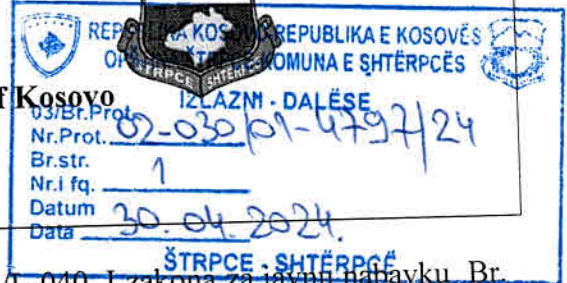 REPUBLIKA KOSOVO REPUBLIKA E KOSOVËS
OPŠTINA ŠTRPCE KOMUNA E SHTËRPCËS
ŠTRPCE SHTËRPCË
f Kosovo
IZLAZNI - DALËSE
03/Br.Prot.
Nr.Prot. 02-030/01-4797/24
Br.str.
Nr.i fq. 1
Datum
Data 30.04.2024.
ŠTRPCE - SHTËRPCË
/L-040, I zakona za javnu nabavku Br.